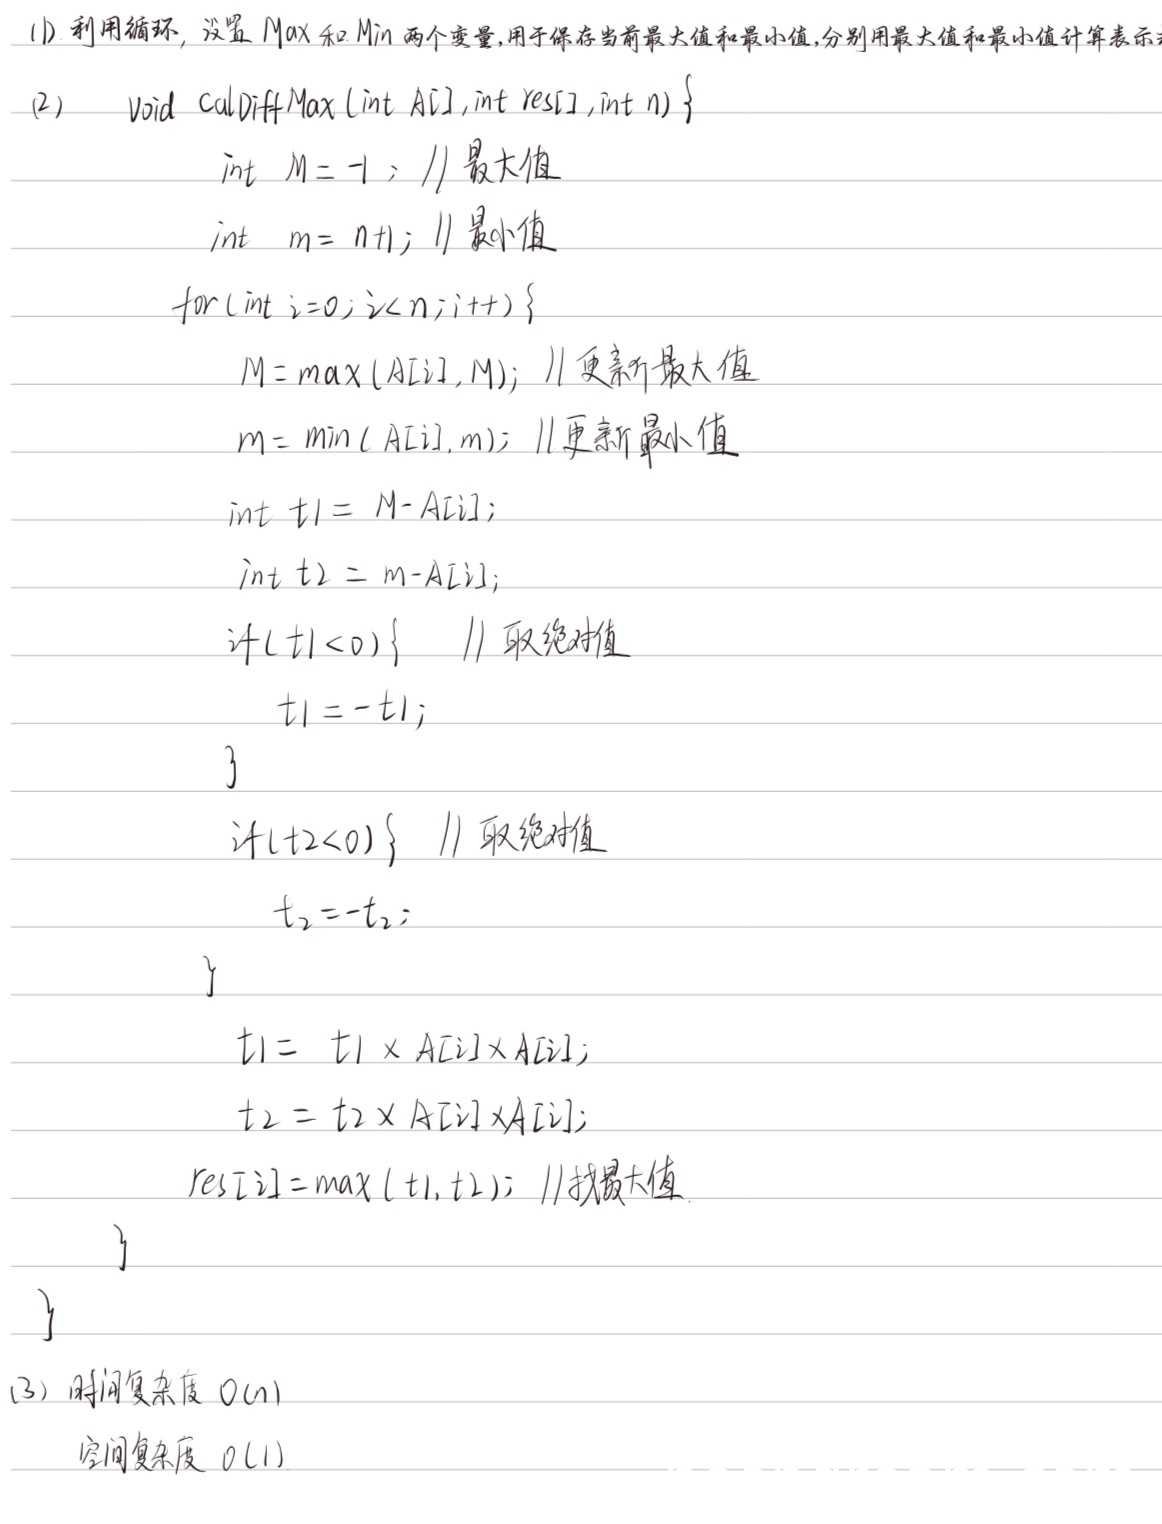 (1) 利用循环, 设置 Max 和 Min 两个变量,用于保存当前最大值和最小值,分别用最大值和最小值计算表示
(2) void CalDiffMax (int A[], int res[], int n) {
int M = -1; // 最大值
int m = n+1; // 最小值
for (int i=0; i<n; i++) {
M = max (A[i], M); // 更新最大值
m = min ( A[i], m); // 更新最小值
int t1 = M-A[i];
int t2 = m-A[i];
if (t1<0) { // 取绝对值
t1 = -t1;
}
if (t2<0) { // 取绝对值
t2 = -t2;
}
t1 = t1 × A[i] × A[i];
t2 = t2 × A[i] × A[i];
res[i] = max (t1, t2); // 找最大值.
}
}
(3) 时间复杂度 O(n)
空间复杂度 O(1)